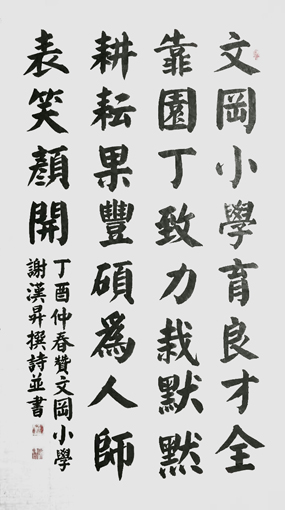 文岡小學育良才全
靠園丁致力栽默默
耕耘果豐碩為人師
表笑顏開
丁酉仲春贊文岡小學
謝漢昇撰詩並書